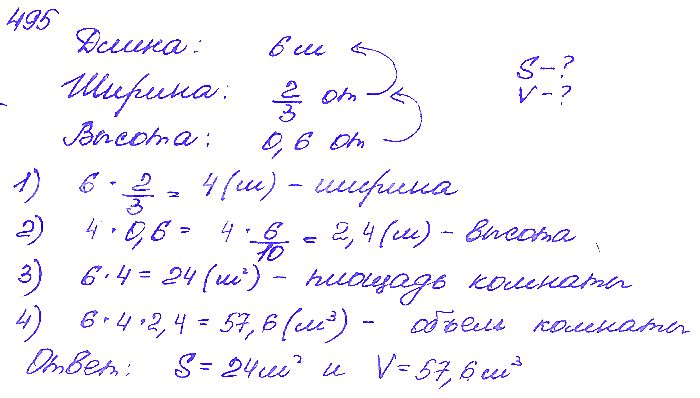 495
Длина: 6 м
Ширина: 2/3 от
Высота: 0,6 от
S-?
V-?
1) 6 · 2/3 = 4 (м) - ширина
2) 4 · 0,6 = 4 · 6/10 = 2,4 (м) - высота
3) 6 · 4 = 24 (м²) - площадь комнаты
4) 6 · 4 · 2,4 = 57,6 (м³) - объем комнаты
Ответ: S = 24 м² и V = 57,6 м³